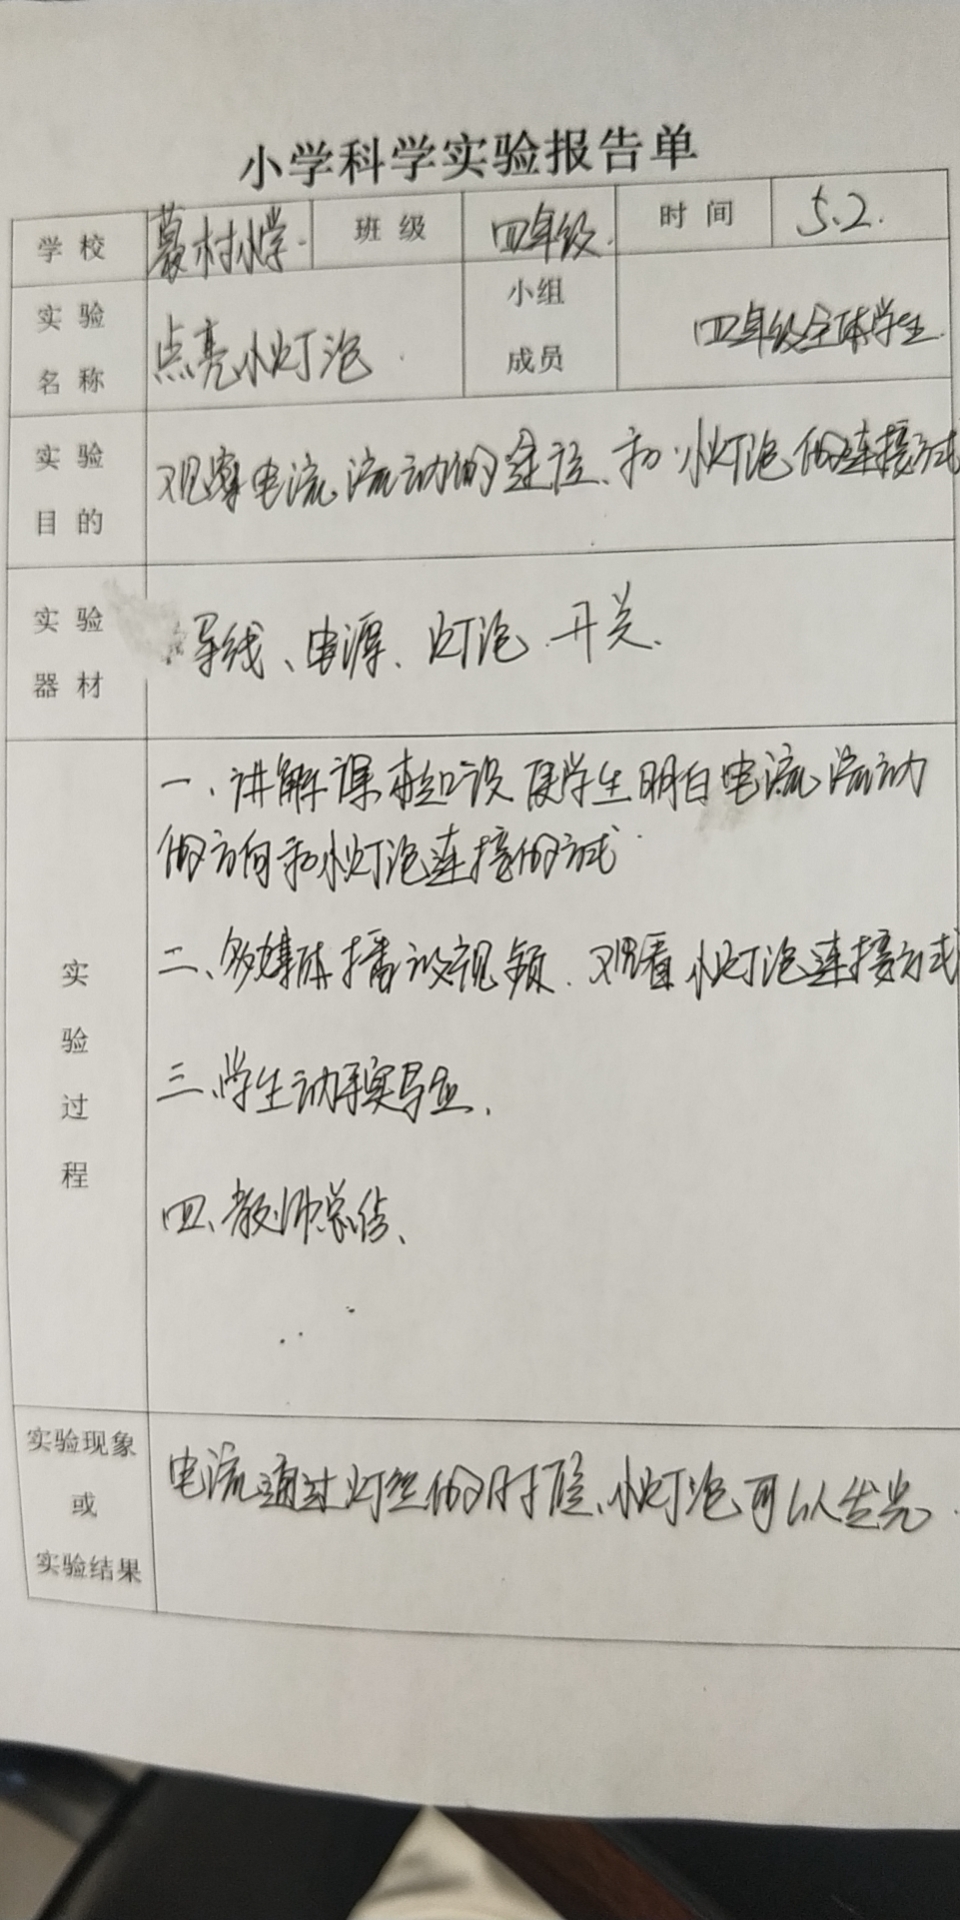 小学科学实验报告单
学校 慕村小学. 班级 四年级. 时间 5.2.
实验名称 点亮小灯泡. 小组成员 四年级全体学生.
实验目的 观察电流流动的途径、和小灯泡的连接方式
实验器材 导线、电源、灯泡、开关.
实验过程
一、讲解课本知识 使学生明白电流流动
的方向和小灯泡连接的方式.
二、多媒体播放视频、观看小灯泡连接方式
三、学生动手实验.
四、教师总结、
实验现象或实验结果
电流通过灯丝的时候、小灯泡可以发光.